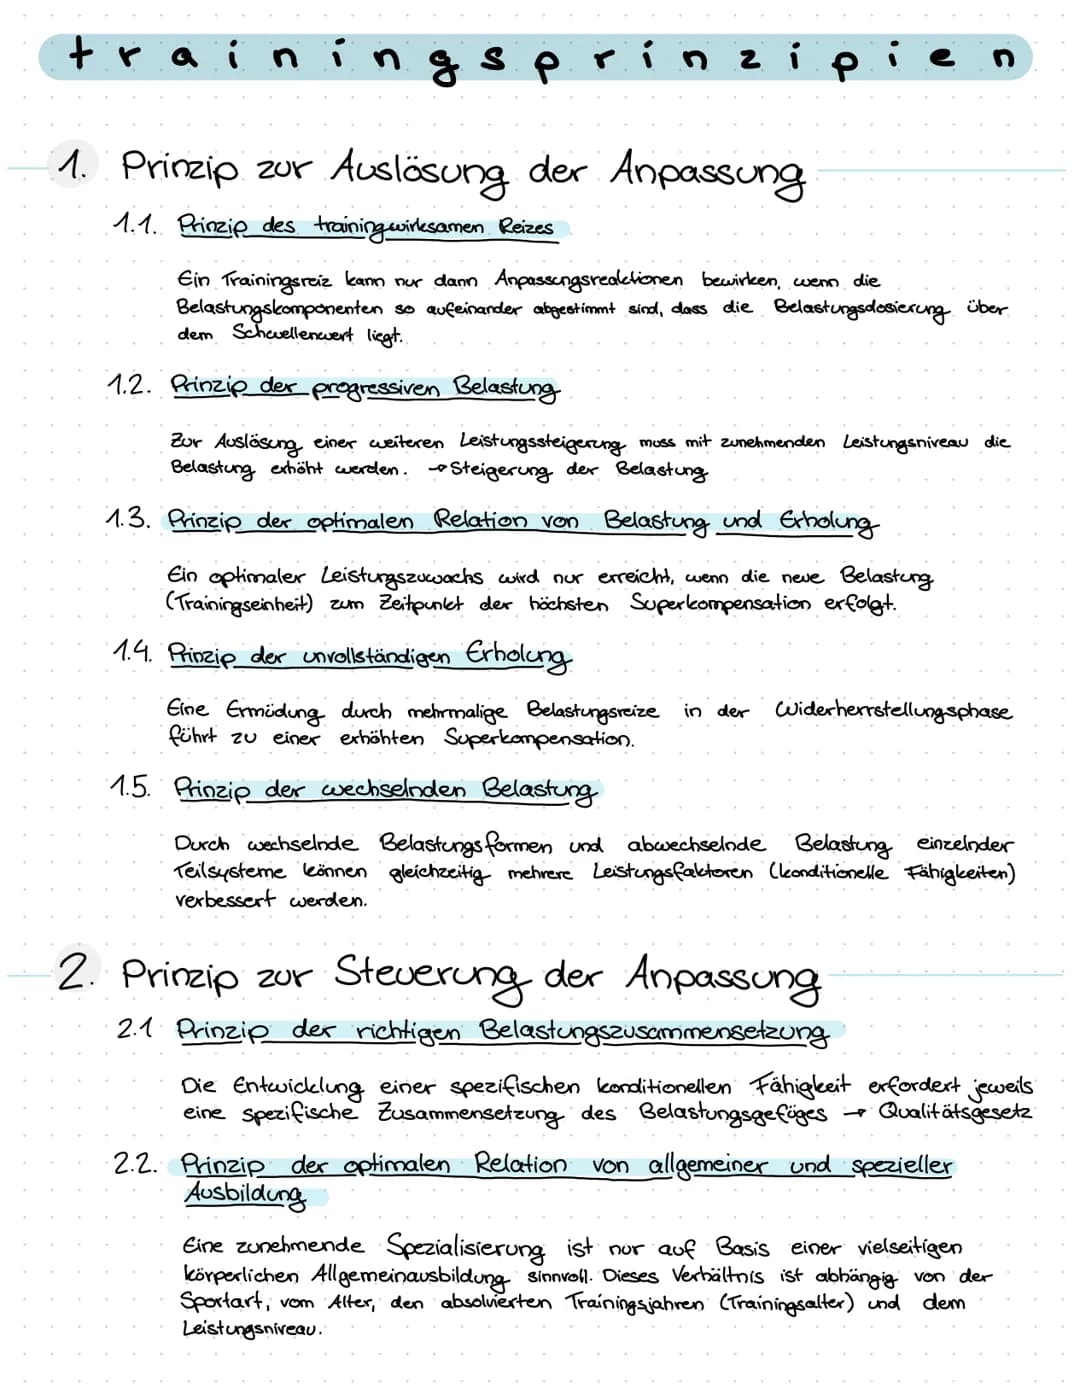 trainingsprinzipien
1. Prinzip zur Auslösung der Anpassung
1.1. Prinzip des trainingwirksamen Reizes
Ein Trainingsreiz kann nur dann Anpassungsreaktionen bewirken, wenn die
Belastungskomponenten so aufeinander abgestimmt sind, dass die Belastungsdosierung über
dem Schwellenwert liegt.
1.2. Prinzip der progressiven Belastung
Zur Auslösung einer weiteren Leistungssteigerung muss mit zunehmenden Leistungsniveau die
Belastung erhöht werden. → Steigerung der Belastung
1.3. Prinzip der optimalen Relation von Belastung und Erholung
Ein optimaler Leistungszuwachs wird nur erreicht, wenn die neue Belastung
(Trainingseinheit) zum Zeitpunkt der höchsten Superkompensation erfolgt.
1.4. Prinzip der unvollständigen Erholung
Eine Ermüdung durch mehrmalige Belastungsreize in der Widerherrstellungsphase
führt zu einer erhöhten Superkompensation.
1.5. Prinzip der wechselnden Belastung
Durch wechselnde Belastungsformen und abwechselnde Belastung einzelnder
Teilsysteme können gleichzeitig mehrere Leistungsfaktoren (konditionelle Fähigkeiten)
verbessert werden.
2. Prinzip zur Steuerung der Anpassung
2.1 Prinzip der richtigen Belastungszusammensetzung
Die Entwicklung einer spezifischen konditionellen Fähigkeit erfordert jeweils
eine spezifische Zusammensetzung des Belastungsgefüges → Qualitätsgesetz
2.2. Prinzip der optimalen Relation von allgemeiner und spezieller
Ausbildung
Eine zunehmende Spezialisierung ist nur auf Basis einer vielseitigen
körperlichen Allgemeinausbildung sinnvoll. Dieses Verhältnis ist abhängig von der
Sportart, vom Alter, den absolvierten Trainingsjahren (Trainingsalter) und dem
Leistungsniveau.